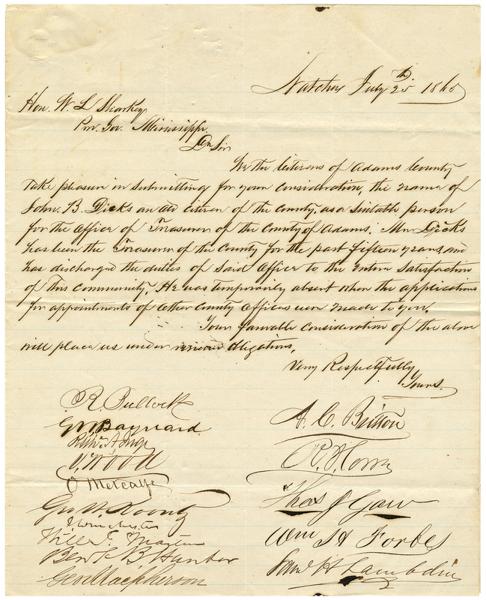 Natchez July 25th 1865
Hon. W. L Sharkey
Prov. Gov. Mississippi
Dr Sir
We the Citizens of Adams County
take pleasure in submitting for your consideration, the name of
John. B. Dicks an old citizen of the County, as a suitable person
for the office of Treasurer of the County of Adams. Mr Dicks
has been the Treasurer of the County for the past fifteen years and
has discharged the duties of said office to the entire satisfaction
of this community. He was temporarily absent when the applications
for appointments of other County offices were made to you.
Your favorable consideration of the above
will place us under obligations,
Very Respectfully
Yours.
R. Bullock
A. C. Britton
G W Baynard
O Metcalfe
Geo. W. Koontz
Thos J Gaw
J Winchester
Will T. Martin
Wm H Forbes
Benj. B. Hunter
Geo Macpherson
Saml H Lambdin